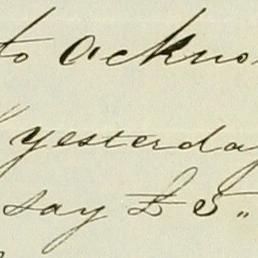 to ackno
yesterday
say £5"